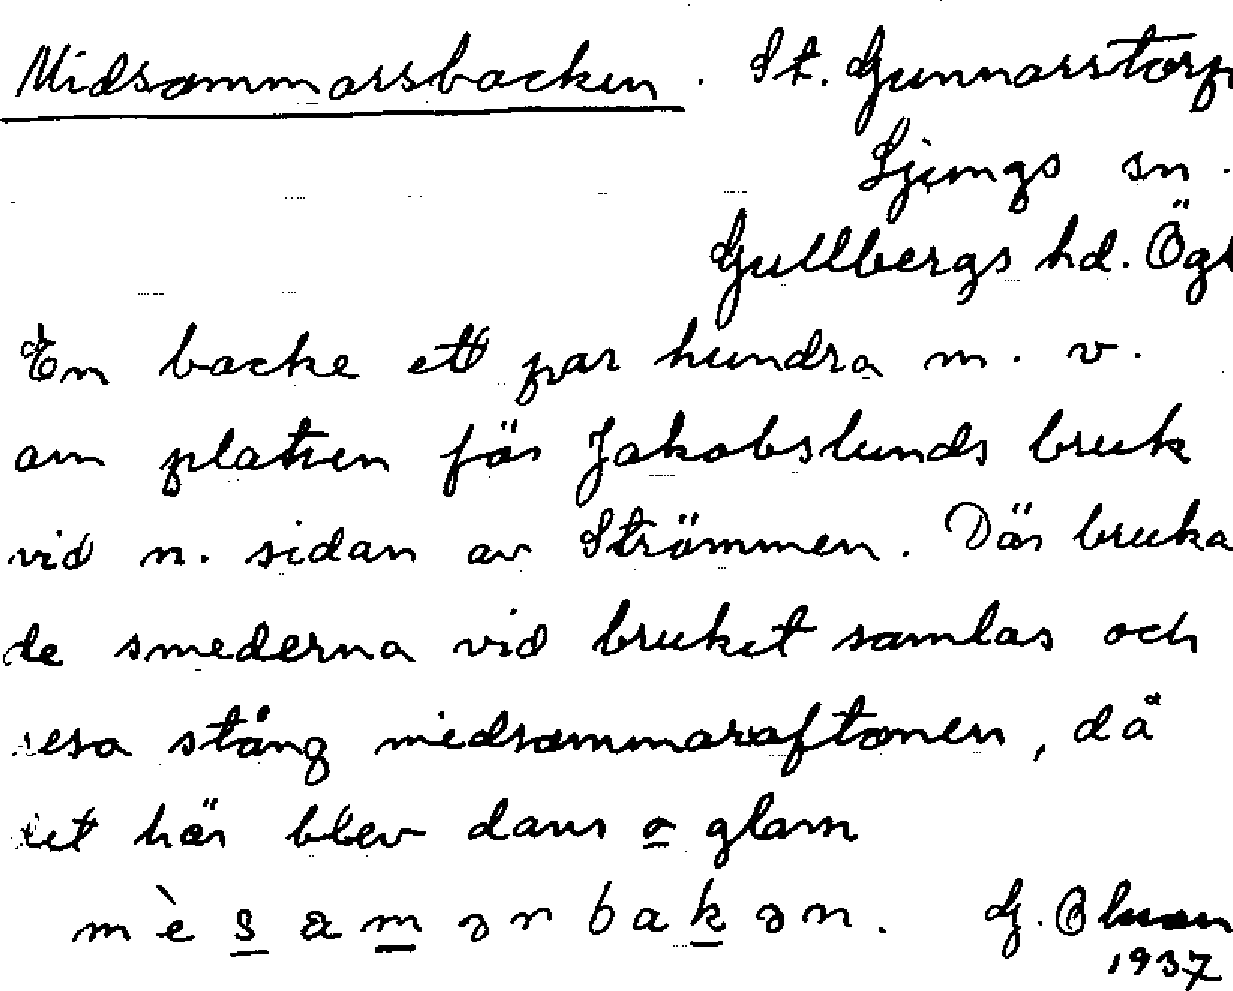 Midsommarsbacken. St. Gunnarstorp
Ljungs sn.
Gullbergs hd. Ögt
En backe ett par hundra m. v.
om platsen för Jakobslunds bruk
vid n. sidan av Strömmen. Där bruka
de smederna vid bruket samlas och
resa stång midsommaraftonen, då
det här blev dans o glam
mè s a m ər b a k ə n.
G. Olsson
1937